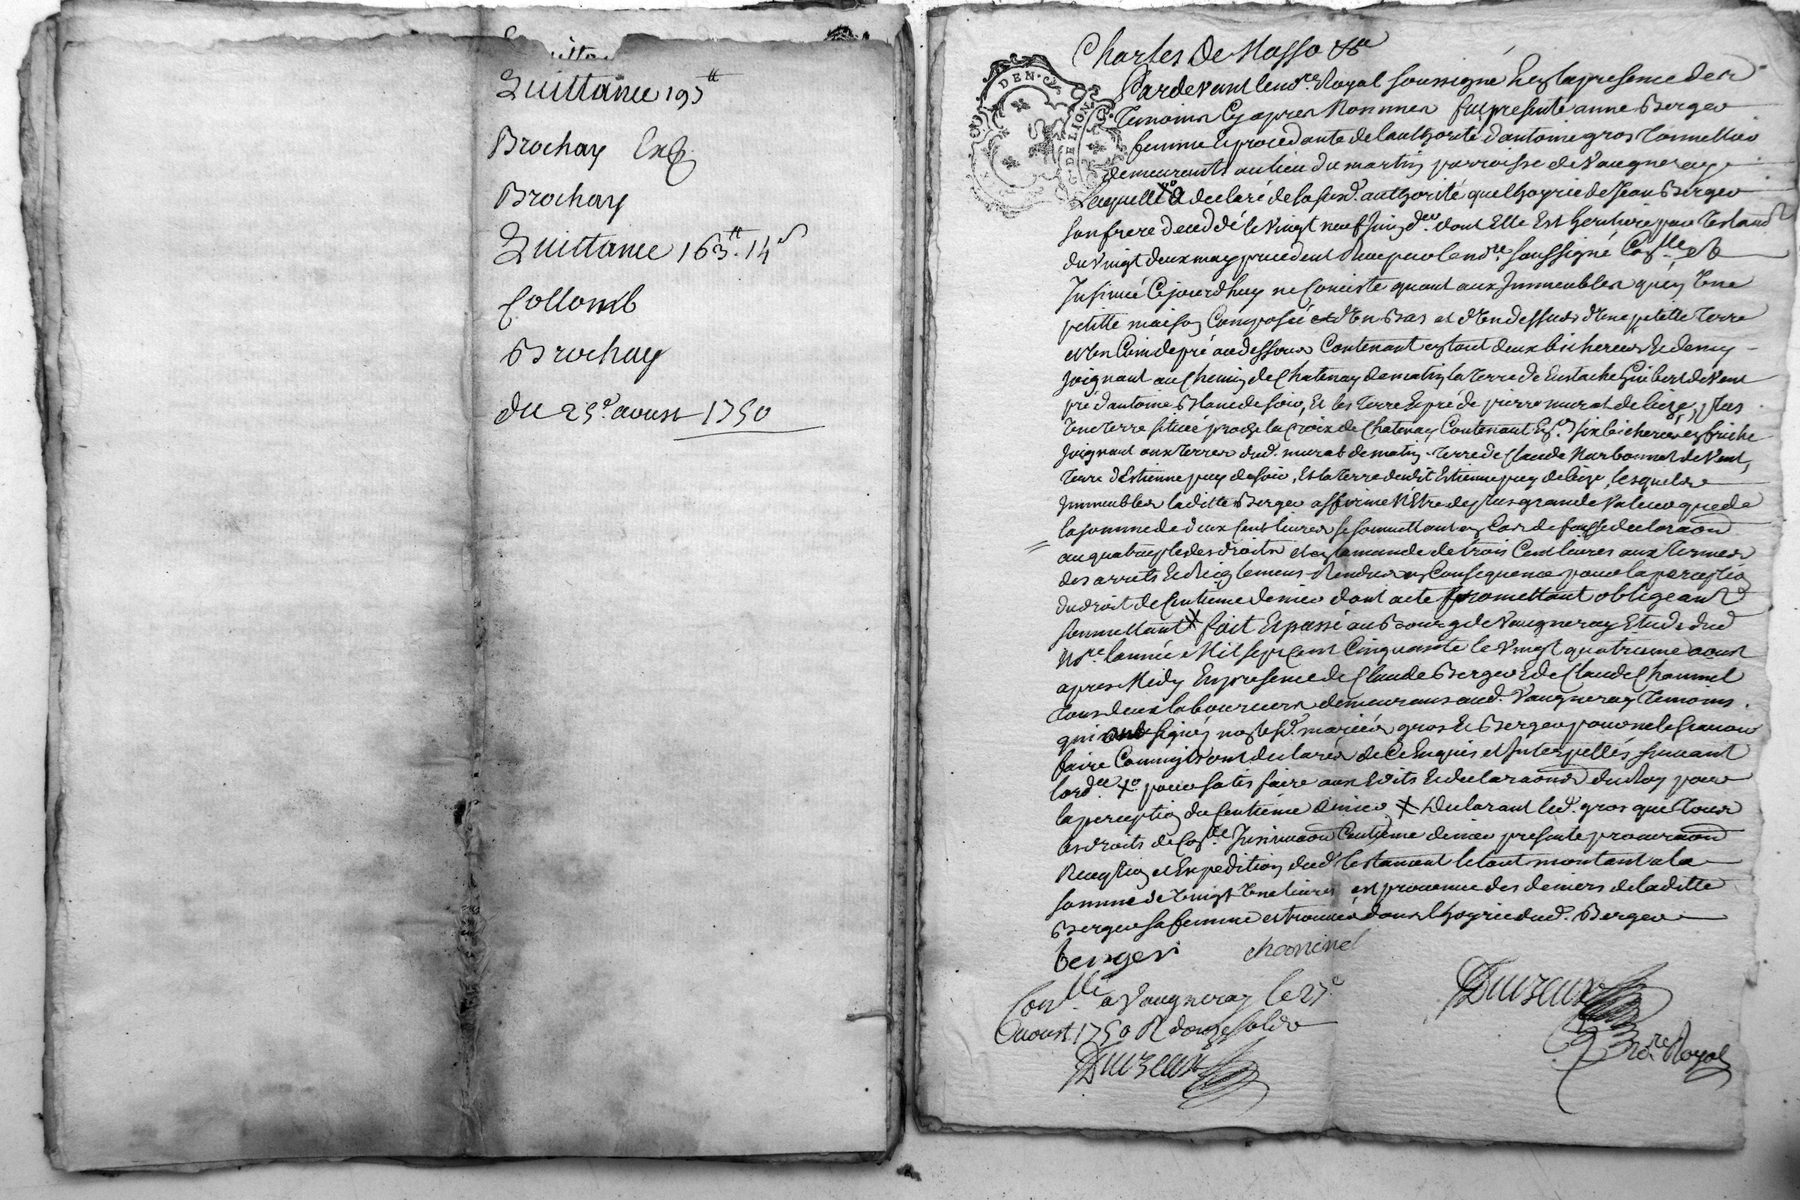 Quittance 195ᵗᵗ
Brochay Exp.
Brochay
Quittance 163ᵗᵗ. 14ˢ
Collomb
Brochay
du 25ᵉ. aoust 1750
Charles De Masso &ᵃ
Pardevant le noʳᵉ. Royal soussigné Et En la presence des
Temoins Cy apres Nommes fut presente anne Berger
femme Et procedante de l'authorité d'antoine gros Tonnellier
demeurants au lieu du martin parroisse de Vaugneray
Laquelle xº a declaré de sa susd. authorité que l'hoyrie de Jean Berger
son frere decedé le vingt neuf Juin dᵉʳ. dont Elle Est heritiere par Testamᵗ
du vingt deux may precedent Reçu par le noʳᵉ soussigné Conˡˡᵉ &
Insinué Cejourdhuy ne Consiste quant aux Immeubles qu'en Une
petitte maison Composée d'En Bas et d'En dessus d'Une petitte Terre
et d'en Coin de pré au dessous Contenant en tout deux bicherees Et demy
Joignant au Chemin de Chatenay de matin la Terre de Eustache Guibert de Vent
pré d'antoine Blanc de soir, Et les Terre Et pré de pierre murat de bize, plus
Une Terre située proche la Croix de Chatenay Contenant Enᵒⁿ six bicherees en friche
Joignant aux Terres dud. murat de matin Terre de Claude Narbonnet de Vent,
Terre d'Estienne puy de soir, Et la Terre dudit Estienne puy de bize, lesquels
Immeubles laditte Berger affirme N'Etre de plus grande Valeur que de
la somme de deux Cent livres se soumettant en Cas de fausse declaraõn
au quatruple des droits et en l'amande de trois Cent livres aux Termes
des arrets Et Reiglemens Rendus en Consequence pour la perception
du droit de Centieme denier dont acte promettant obligeant
soumettant x fait Et passé au Bourg de Vaugneray Etude dud
Noʳᵉ. l'année Mil sept Cent Cinquante le Vingt quatrieme aout
apres Midy En presence de Claude Berger Et de Claude Chaminel
Tous deux laboureurs demeurans aud. Vaugneray Temoins.
qui ont signés non lesd. mariés gros Et Berger pour ne le sçavoir
faire Comm'ils ont declarés de Ce Enquis et Interpellés suivant
l'ordᶜᵉ. xº pour satisfaire aux Edits Et declaraõns du Roy pour
la perception du Centieme denier, x Declarant led. gros que Tous
les droits de Conˡˡᵉ Insinuaõn Centieme denier presente
Reception et Expedition dud. Testament le tout montant a la
somme de Vingt Une livres est provenue des deniers de laditte
Berger sa femme et trouvés dans l'hoyrie dud. Berger
berger chaminel
Conˡˡᵉ a Vaugneray le 25ᵉ
aoust 1750 R douze sols
noʳᵉ Royal